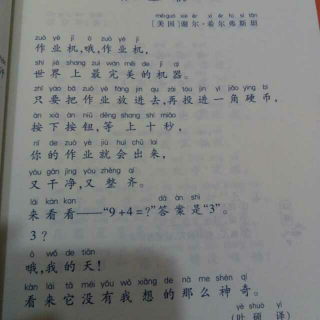 měi guó xiè ěr xī ěr fú sī tǎn
[美国]谢尔·希尔弗斯坦
zuò yè jī ò zuò yè jī
作业机,哦,作业机,
shì jiè shàng zuì wán měi de jī qì
世界上最完美的机器。
zhǐ yào bǎ zuò yè fàng jìn qù zài tóu jìn yì jiǎo yìng bì
只要把作业放进去,再投进一角硬币,
àn xià àn niǔ děng shàng shí miǎo
按下按钮,等上十秒,
nǐ de zuò yè jiù huì chū lái
你的作业就会出来,
yòu gān jìng yòu zhěng qí
又干净,又整齐。
lái kàn kan dá àn shì
来看看——“9+4=?”答案是“3”。
3?
ò wǒ de tiān
哦,我的天!
kàn lái tā méi yǒu wǒ xiǎng de nà me shén qí
看来它没有我想的那么神奇。
yè shuò yì
(叶硕 译)